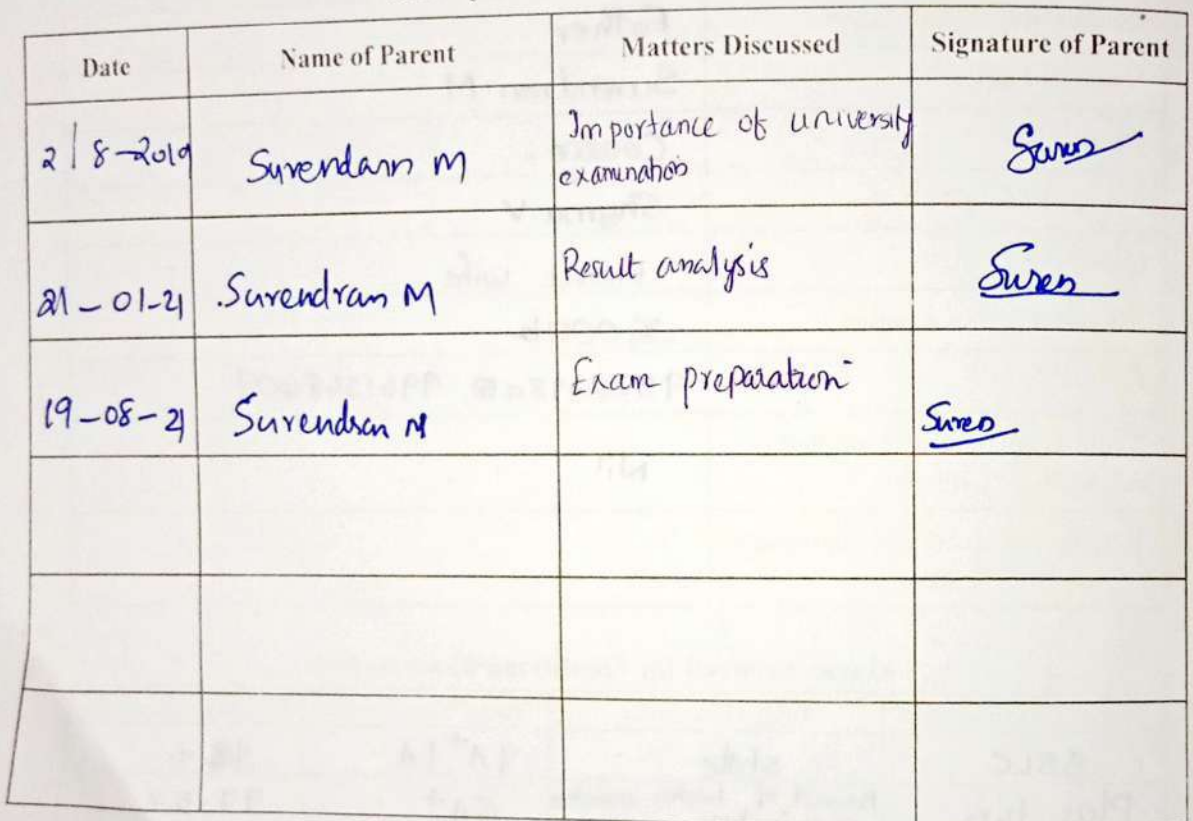 Date Name of Parent Matters Discussed Signature of Parent
2|8-2019 Surendarn M Importance of university
examination Suren
21-01-21 Surendran M Result analysis Suren
19-08-21 Surendran M Exam preparation Suren